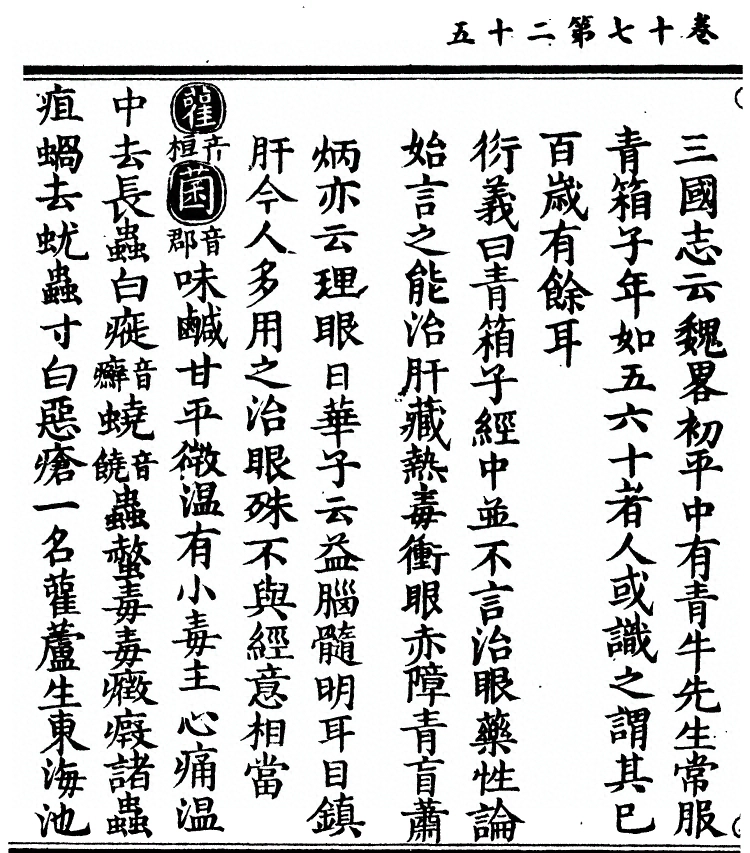 卷十七第二十五
三國志云魏畧初平中有青牛先生常服
青箱子年如五六十者人或識之謂其已
百歲有餘耳
衍義曰青箱子經中並不言治眼藥性論
始言之能治肝藏熱毒衝眼赤障青盲蕭
炳亦云理眼日華子云益腦髓明耳目鎮
肝今人多用之治眼殊不與經意相當
雚音桓菌音郡味鹹甘平微温有小毒主心痛温
中去長蟲白音癬蟯音饒蟲螫毒毒癥瘕諸蟲
疽蝸去蚘蟲寸白惡瘡一名雚蘆生東海池